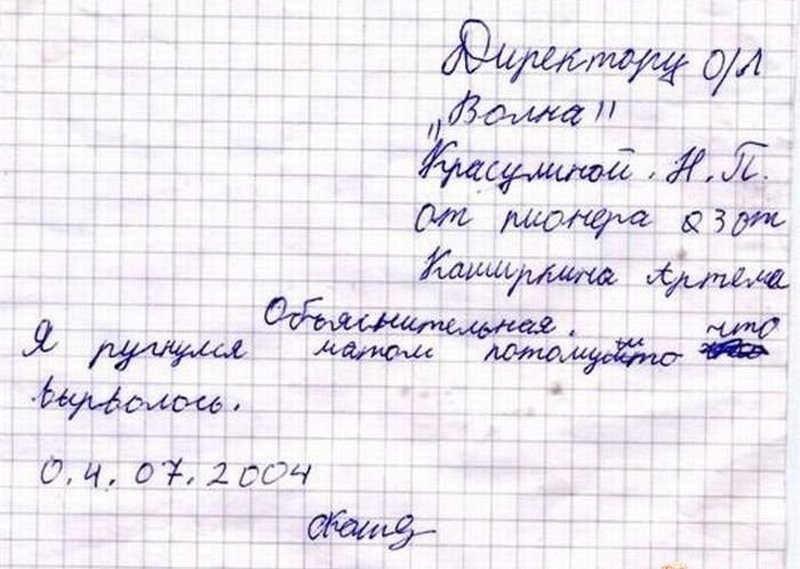 Директору О/Л
„Волна"
Красулиной. Н. П.
от пионера 23 от
Каширкина Артема
Объяснительная.
Я ругнулся матом потомуто что
вырволось.
0.4.07.2004